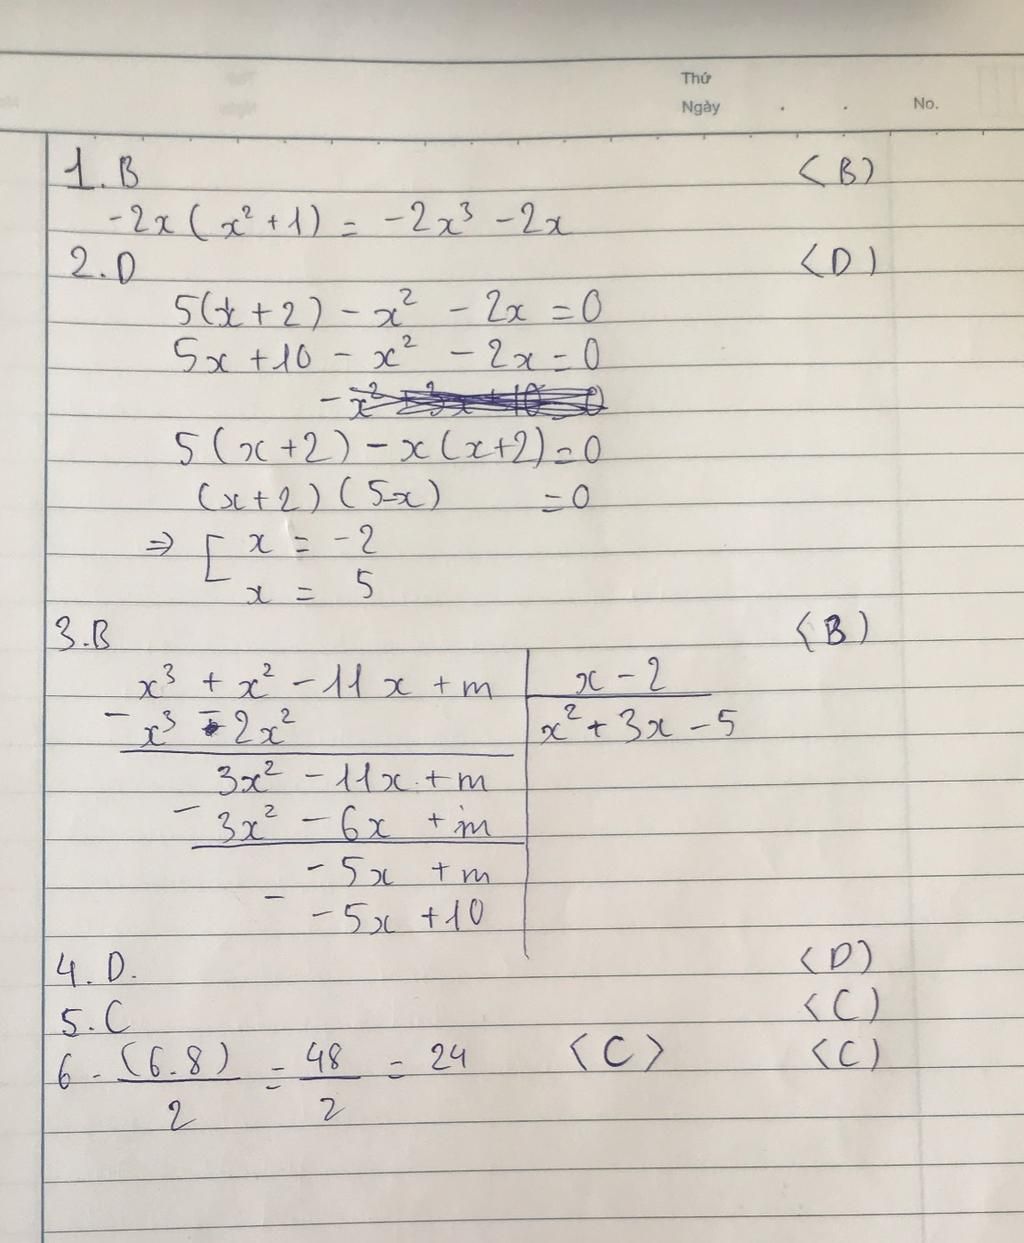 Thứ
Ngày . . No.
1. B <B>
-2x(x² + 1) = -2x³ - 2x
2. D <D>
5(x + 2) - x² - 2x = 0
5x + 10 - x² - 2x = 0
5(x + 2) - x(x + 2) = 0
(x + 2)(5 - x) = 0
⇒ [ x = -2
x = 5
3. B <B>
x³ + x² - 11x + m | x - 2
- x³ - 2x² | x² + 3x - 5
3x² - 11x + m
- 3x² - 6x + m
- 5x + m
- - 5x + 10
4. D. <D>
5. C <C>
6 - (6.8)/2 = 48/2 = 24 <C> <C>